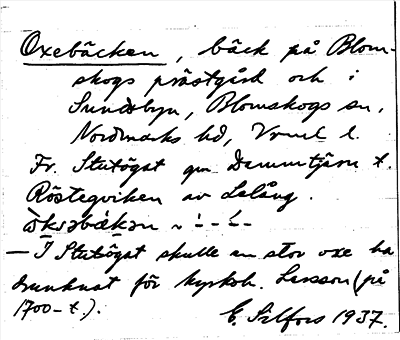 Oxebäcken, bäck på Blom-
skogs prästgård och i
Sundsbyn, Blomskogs sn,
Nordmarks hd, Vrml l.
Fr. Stutögat gm Dammtjärn t.
Röstegviken av Lelång.
— I Stutögat skulle en stor oxe ha
drunknat för kyrkoh. Larsson (på
1700-t.).
E. Silfors 1937.